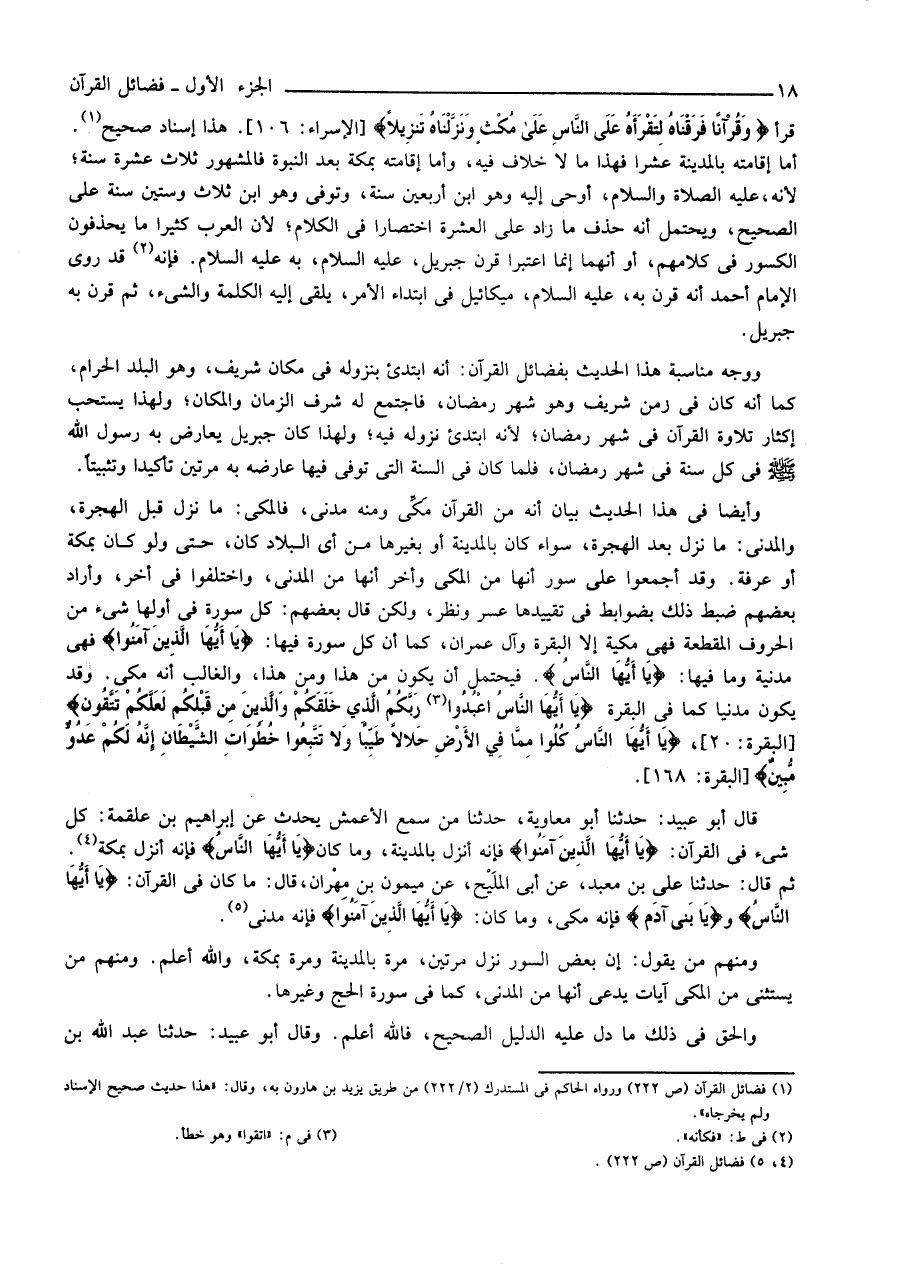 ١٨ ــــــــــــــــــــــــــــــــــــــــــــــــ الجزء الأول ـ فضائل القرآن
قرأ ﴿ وَقُرْآنًا فَرَقْنَاهُ لِتَقْرَأَهُ عَلَى النَّاسِ عَلَىٰ مُكْثٍ وَنَزَّلْنَاهُ تَنزِيلاً﴾ [الإسراء: ١٠٦]. هذا إسناد صحيح(١).
أما إقامته بالمدينة عشرا فهذا ما لا خلاف فيه، وأما إقامته بمكة بعد النبوة فالمشهور ثلاث عشرة سنة؛
لأنه،عليه الصلاة والسلام، أوحى إليه وهو ابن أربعين سنة، وتوفى وهو ابن ثلاث وستين سنة على
الصحيح، ويحتمل أنه حذف ما زاد على العشرة اختصارا فى الكلام؛ لأن العرب كثيرا ما يحذفون
الكسور فى كلامهم، أو أنهما إنما اعتبرا قرن جبريل، عليه السلام، به عليه السلام. فإنه(٢) قد روى
الإمام أحمد أنه قرن به، عليه السلام، ميكائيل فى ابتداء الأمر، يلقى إليه الكلمة والشىء، ثم قرن به
جبريل.
ووجه مناسبة هذا الحديث بفضائل القرآن: أنه ابتدئ بنزوله فى مكان شريف، وهو البلد الحرام،
كما أنه كان فى زمن شريف وهو شهر رمضان، فاجتمع له شرف الزمان والمكان؛ ولهذا يستحب
إكثار تلاوة القرآن فى شهر رمضان؛ لأنه ابتدئ نزوله فيه؛ ولهذا كان جبريل يعارض به رسول الله
ﷺ فى كل سنة فى شهر رمضان، فلما كان فى السنة التى توفى فيها عارضه به مرتين تأكيدا وتثبيتاً.
وأيضا فى هذا الحديث بيان أنه من القرآن مَكِّى ومنه مدنى، فالمكى: ما نزل قبل الهجرة،
والمدنى: ما نزل بعد الهجرة، سواء كان بالمدينة أو بغيرها مـن أى الـبلاد كان، حـتى ولو كـان بمكة
أو عرفة. وقد أجمعوا على سور أنها من المكى وأخر أنها من المدنى، واختلفوا فى أخر، وأراد
بعضهم ضبط ذلك بضوابط فى تقييدها عسر ونظر، ولكن قال بعضهم: كل سورة فى أولها شىء من
الحروف المقطعة فهى مكية إلا البقرة وآل عمران، كما أن كل سورة فيها: ﴿يَا أَيُّهَا الَّذِينَ آمَنُوا﴾ فهى
مدنية وما فيها: ﴿يَا أَيُّهَا النَّاسُ ﴾. فيحتمل أن يكون من هذا ومن هذا، والغالب أنه مكى. وقد
يكون مدنيا كما فى البقرة ﴿يَا أَيُّهَا النَّاسُ اعْبُدُوا(٣) رَبَّكُمُ الَّذِي خَلَقَكُمْ وَالَّذِينَ مِن قَبْلِكُمْ لَعَلَّكُمْ تَتَّقُونَ﴾
[البقرة: ٢٠]، ﴿يَا أَيُّهَا النَّاسُ كُلُوا مِمَّا فِي الأَرْضِ حَلالاً طَيِّبًا وَلا تَتَّبِعُوا خُطُوَاتِ الشَّيْطَانِ إِنَّهُ لَكُمْ عَدُوٌّ
مُّبِينٌ﴾ [البقرة: ١٦٨].
قال أبو عبيد: حدثنا أبو معاوية، حدثنا من سمع الأعمش يحدث عن إبراهيم بن علقمة: كل
شىء فى القرآن: ﴿يَا أَيُّهَا الَّذِينَ آمَنُوا﴾ فإنه أنزل بالمدينة، وما كان﴿يَا أَيُّهَا النَّاسُ﴾ فإنه أنزل بمكة(٤).
ثم قال: حدثنا على بن معبد، عن أبى المَلَيْح، عن ميمون بن مِهْران،قال: ما كان فى القرآن: ﴿يَا أَيُّهَا
النَّاسُ﴾ و﴿يَا بَنِى آدَمَ ﴾ فإنه مكى، وما كان: ﴿يَا أَيُّهَا الَّذِينَ آمَنُوا﴾ فإنه مدنى(٥).
ومنهم من يقول: إن بعض السور نزل مرتين، مرة بالمدينة ومرة بمكة، والله أعلم. ومنهم من
يستثنى من المكى آيات يدعى أنها من المدنى، كما فى سورة الحج وغيرها.
والحق فى ذلك ما دل عليه الدليل الصحيح، فالله أعلم. وقال أبو عبيد: حدثنا عبد الله بن
(١) فضائل القرآن (ص ٢٢٢) ورواه الحاكم فى المستدرك (٢/ ٢٢٢) من طريق يزيد بن هارون به، وقال: «هذا حديث صحيح الإسناد
ولم يخرجاه».
(٢) فى ط: «فكأنه». (٣) فى م: «اتقوا» وهو خطأ.
(٤، ٥) فضائل القرآن (ص ٢٢٢) .